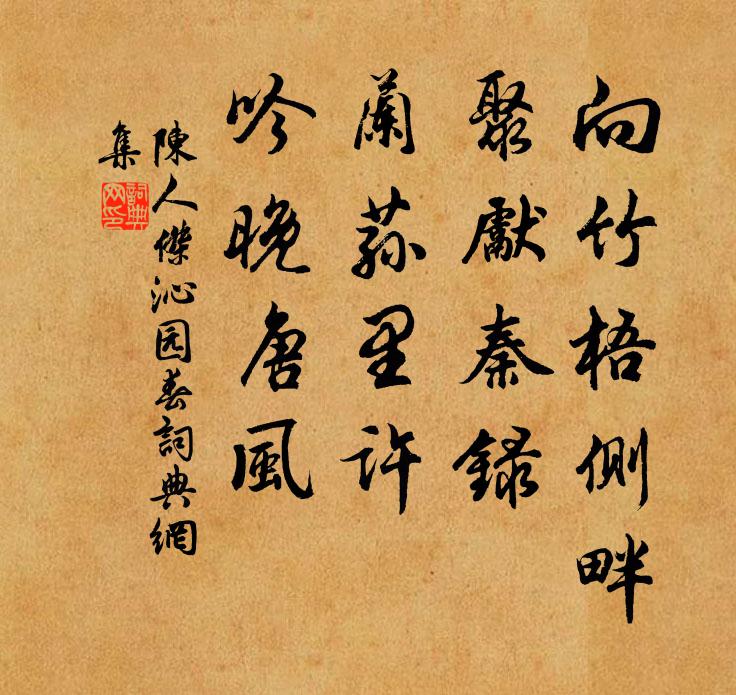 向竹梧側畔
聚獻秦錄
蘭蓀里許
吟晚唐風
陳人傑沁园春詞典網
集
詞典
网印